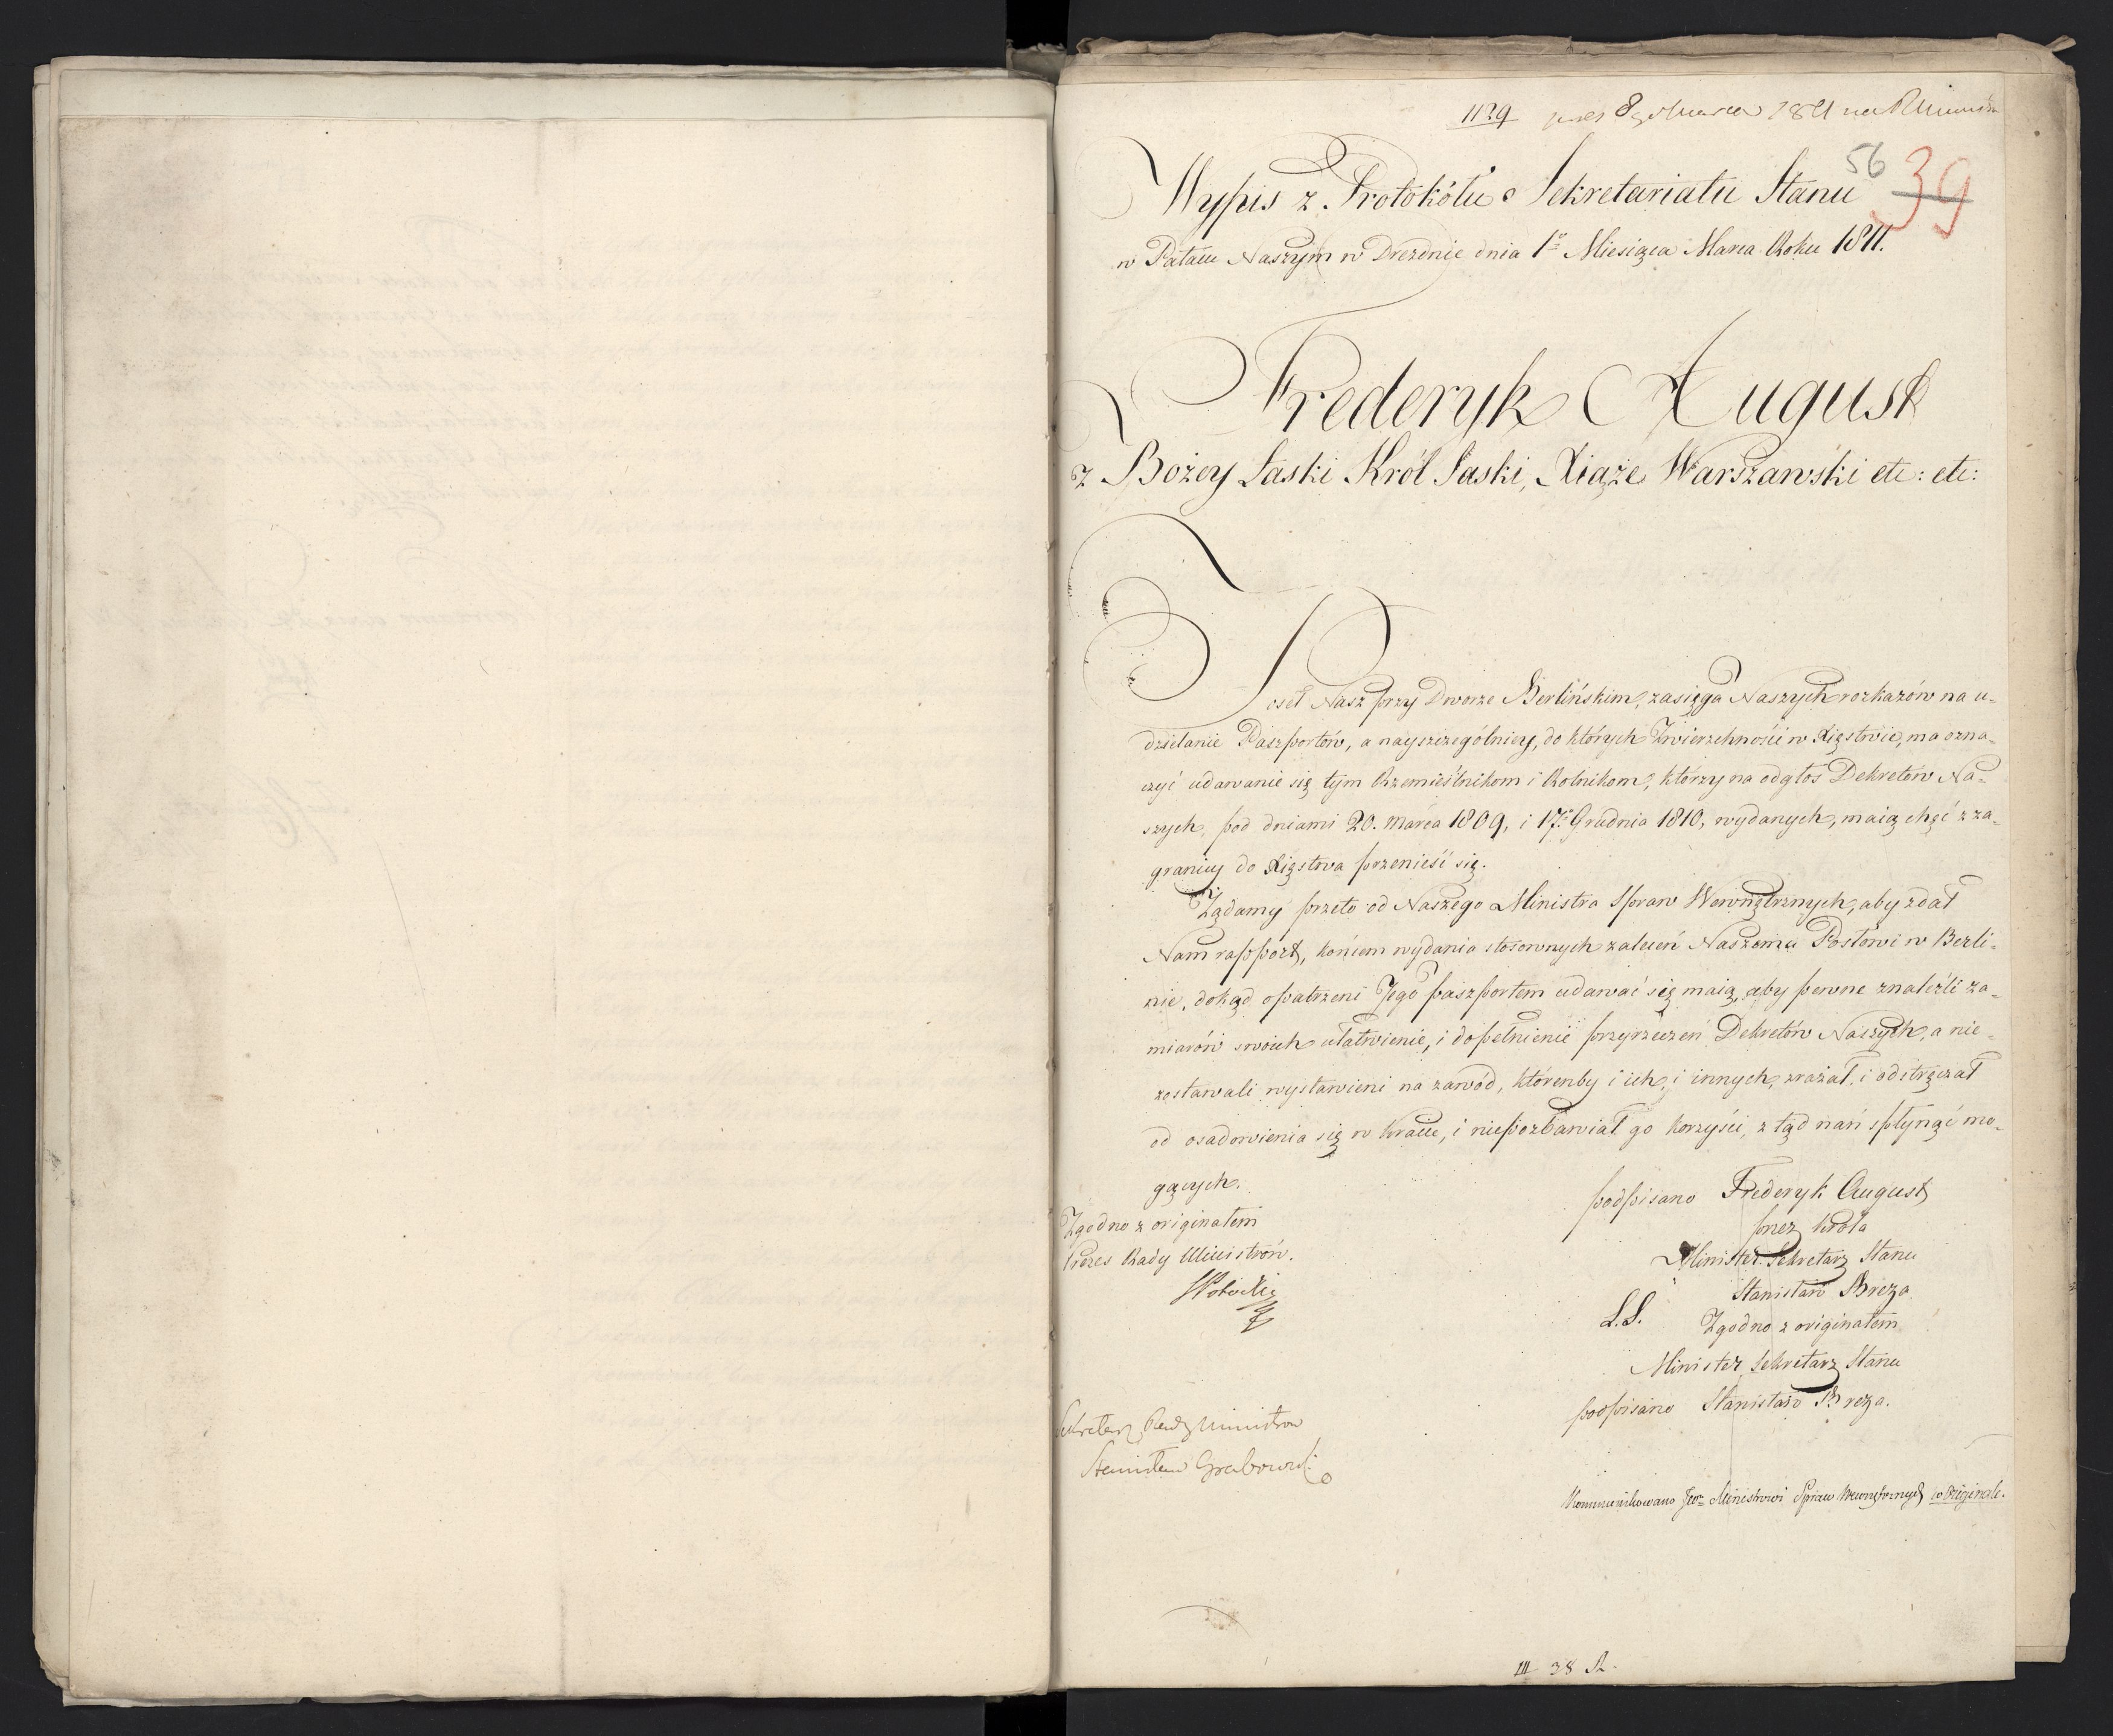 1129 pres 8go Marca 1811 na R Ministrów
56 39
Wypis z Protokółu Sekretariatu Stanu
w Pałacu Naszym w Dreznie dnia 1o Miesiąca Marca Roku 1811.
Frederyk August
z Bożey Łaski Król Saski, Xiąże Warszawski etc: etc:
Poseł Nasz przy Dworze Berlińskim, zasięga Naszych rozkazów na u-
dzielanie Paszportów, a nayszczególniey, do których Zwierzchności w Xięstwie, ma ozna-
czyć udawanie się tym Rzemieślnikom i Rolnikom, którzy na odgłos Dekretów Na-
szych, pod dniami 20. Marca 1809, i 17o Grudnia 1810, wydanych, maią chęć z za-
granicy do Xięstwa przenieść się.
Żądamy przeto od Naszego Ministra Spraw Wewnętrznych, aby zdał
Nam rapport, końcem wydania stosownych zaleceń Naszemu Posłowi w Berli-
nie, dokąd opatrzeni Jego paszportem udawać się maią, aby pewne znaleźli za-
miarów swoich ułatwienie, i dopełnienie przyrzeczeń Dekretów Naszych, a nie-
zostawali wystawieni na zawód, którenby i ich, i innych, zrażał, i odstręczał
od osadowienia się w kraiu, i niepozbawiał go korzyści, z tąd nań spłynąć mo-
gących.
podpisano Frederyk August
przez Króla
Minister Sekretarz Stanu
Stanisław Breza.
L.S. Zgodno z originałem
Minister Sekretarz Stanu
podpisano Stanisław Breza.
Zgodno z originałem
Prezes Rady Ministrów.
SPotocki
Sekretarz Rady Ministrów
Stanisław Grabowski
Kommunikowano JWu Ministrowi Spraw Wewnętrznych w Originale.
III 38 R.